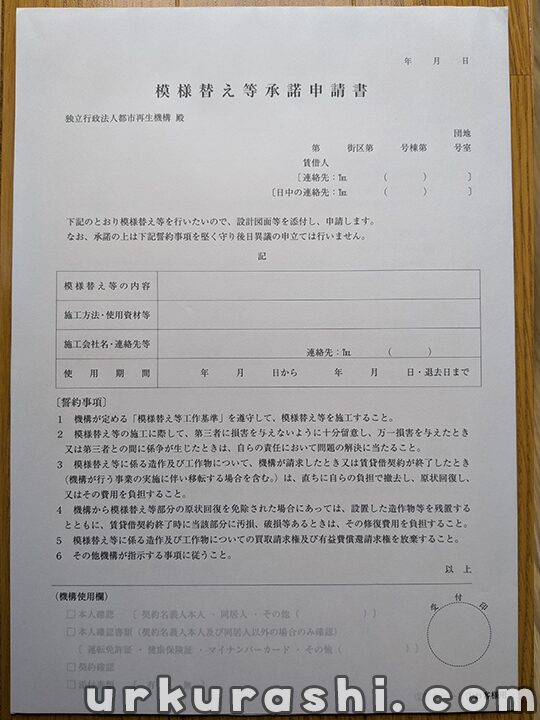 年 月 日
模様替え等承諾申請書
独立行政法人都市再生機構 殿
団地
第 街区第 号棟第 号室
賃借人
〔連絡先:℡ ( ) 〕
〔日中の連絡先:℡ ( ) 〕
下記のとおり模様替え等を行いたいので、設計図面等を添付し、申請します。
なお、承諾の上は下記誓約事項を堅く守り後日異議の申立ては行いません。
記
模様替え等の内容
施工方法・使用資材等
施工会社名・連絡先等 連絡先:℡ ( )
使用期間 年 月 日から 年 月 日・退去日まで
〔誓約事項〕
1 機構が定める「模様替え等工作基準」を遵守して、模様替え等を施工すること。
2 模様替え等の施工に際して、第三者に損害を与えないように十分留意し、万一損害を与えたとき
又は第三者との間に係争が生じたときは、自らの責任において問題の解決に当たること。
3 模様替え等に係る造作及び工作物について、機構が請求したとき又は賃貸借契約が終了したとき
(機構が行う事業の実施に伴い移転する場合を含む。)は、直ちに自らの負担で撤去し、原状回復し、
又はその費用を負担すること。
4 機構から模様替え等部分の原状回復を免除された場合にあっては、設置した造作物等を残置する
とともに、賃貸借契約終了時に当該部分に汚損、破損等あるときは、その修復費用を負担すること。
5 模様替え等に係る造作及び工作物についての買取請求権及び有益費償還請求権を放棄すること。
6 その他機構が指示する事項に従うこと。
以上
(機構使用欄)
受付印
□本人確認 〔 契約名義人本人 ・ 同居人 ・ その他 ( ) 〕
□本人確認書類 (契約名義人本人及び同居人以外の場合のみ確認)
〔 運転免許証 ・ 健康保険証 ・ マイナンバーカード ・ その他 ( ) 〕
□契約確認
□添付書類
urkurashi.com